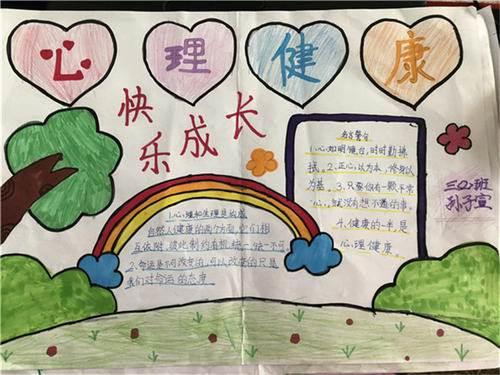 心理健康
快
乐成长
1.心理和生理是构成
自然人健康的两个方面,它们相
互依附,彼此制约有机统一,缺一不可
2.命运是不可改变的,可以改变的只是
我们对命运的态度
警台
1.心如明镜台,时时勤拂
拭。2.正心,以为本,修身以
为基。3.只要你有一颗平常
心,就没有想不通的事。
4.健康的一半是
心理健康
三(2)班
孙子宣